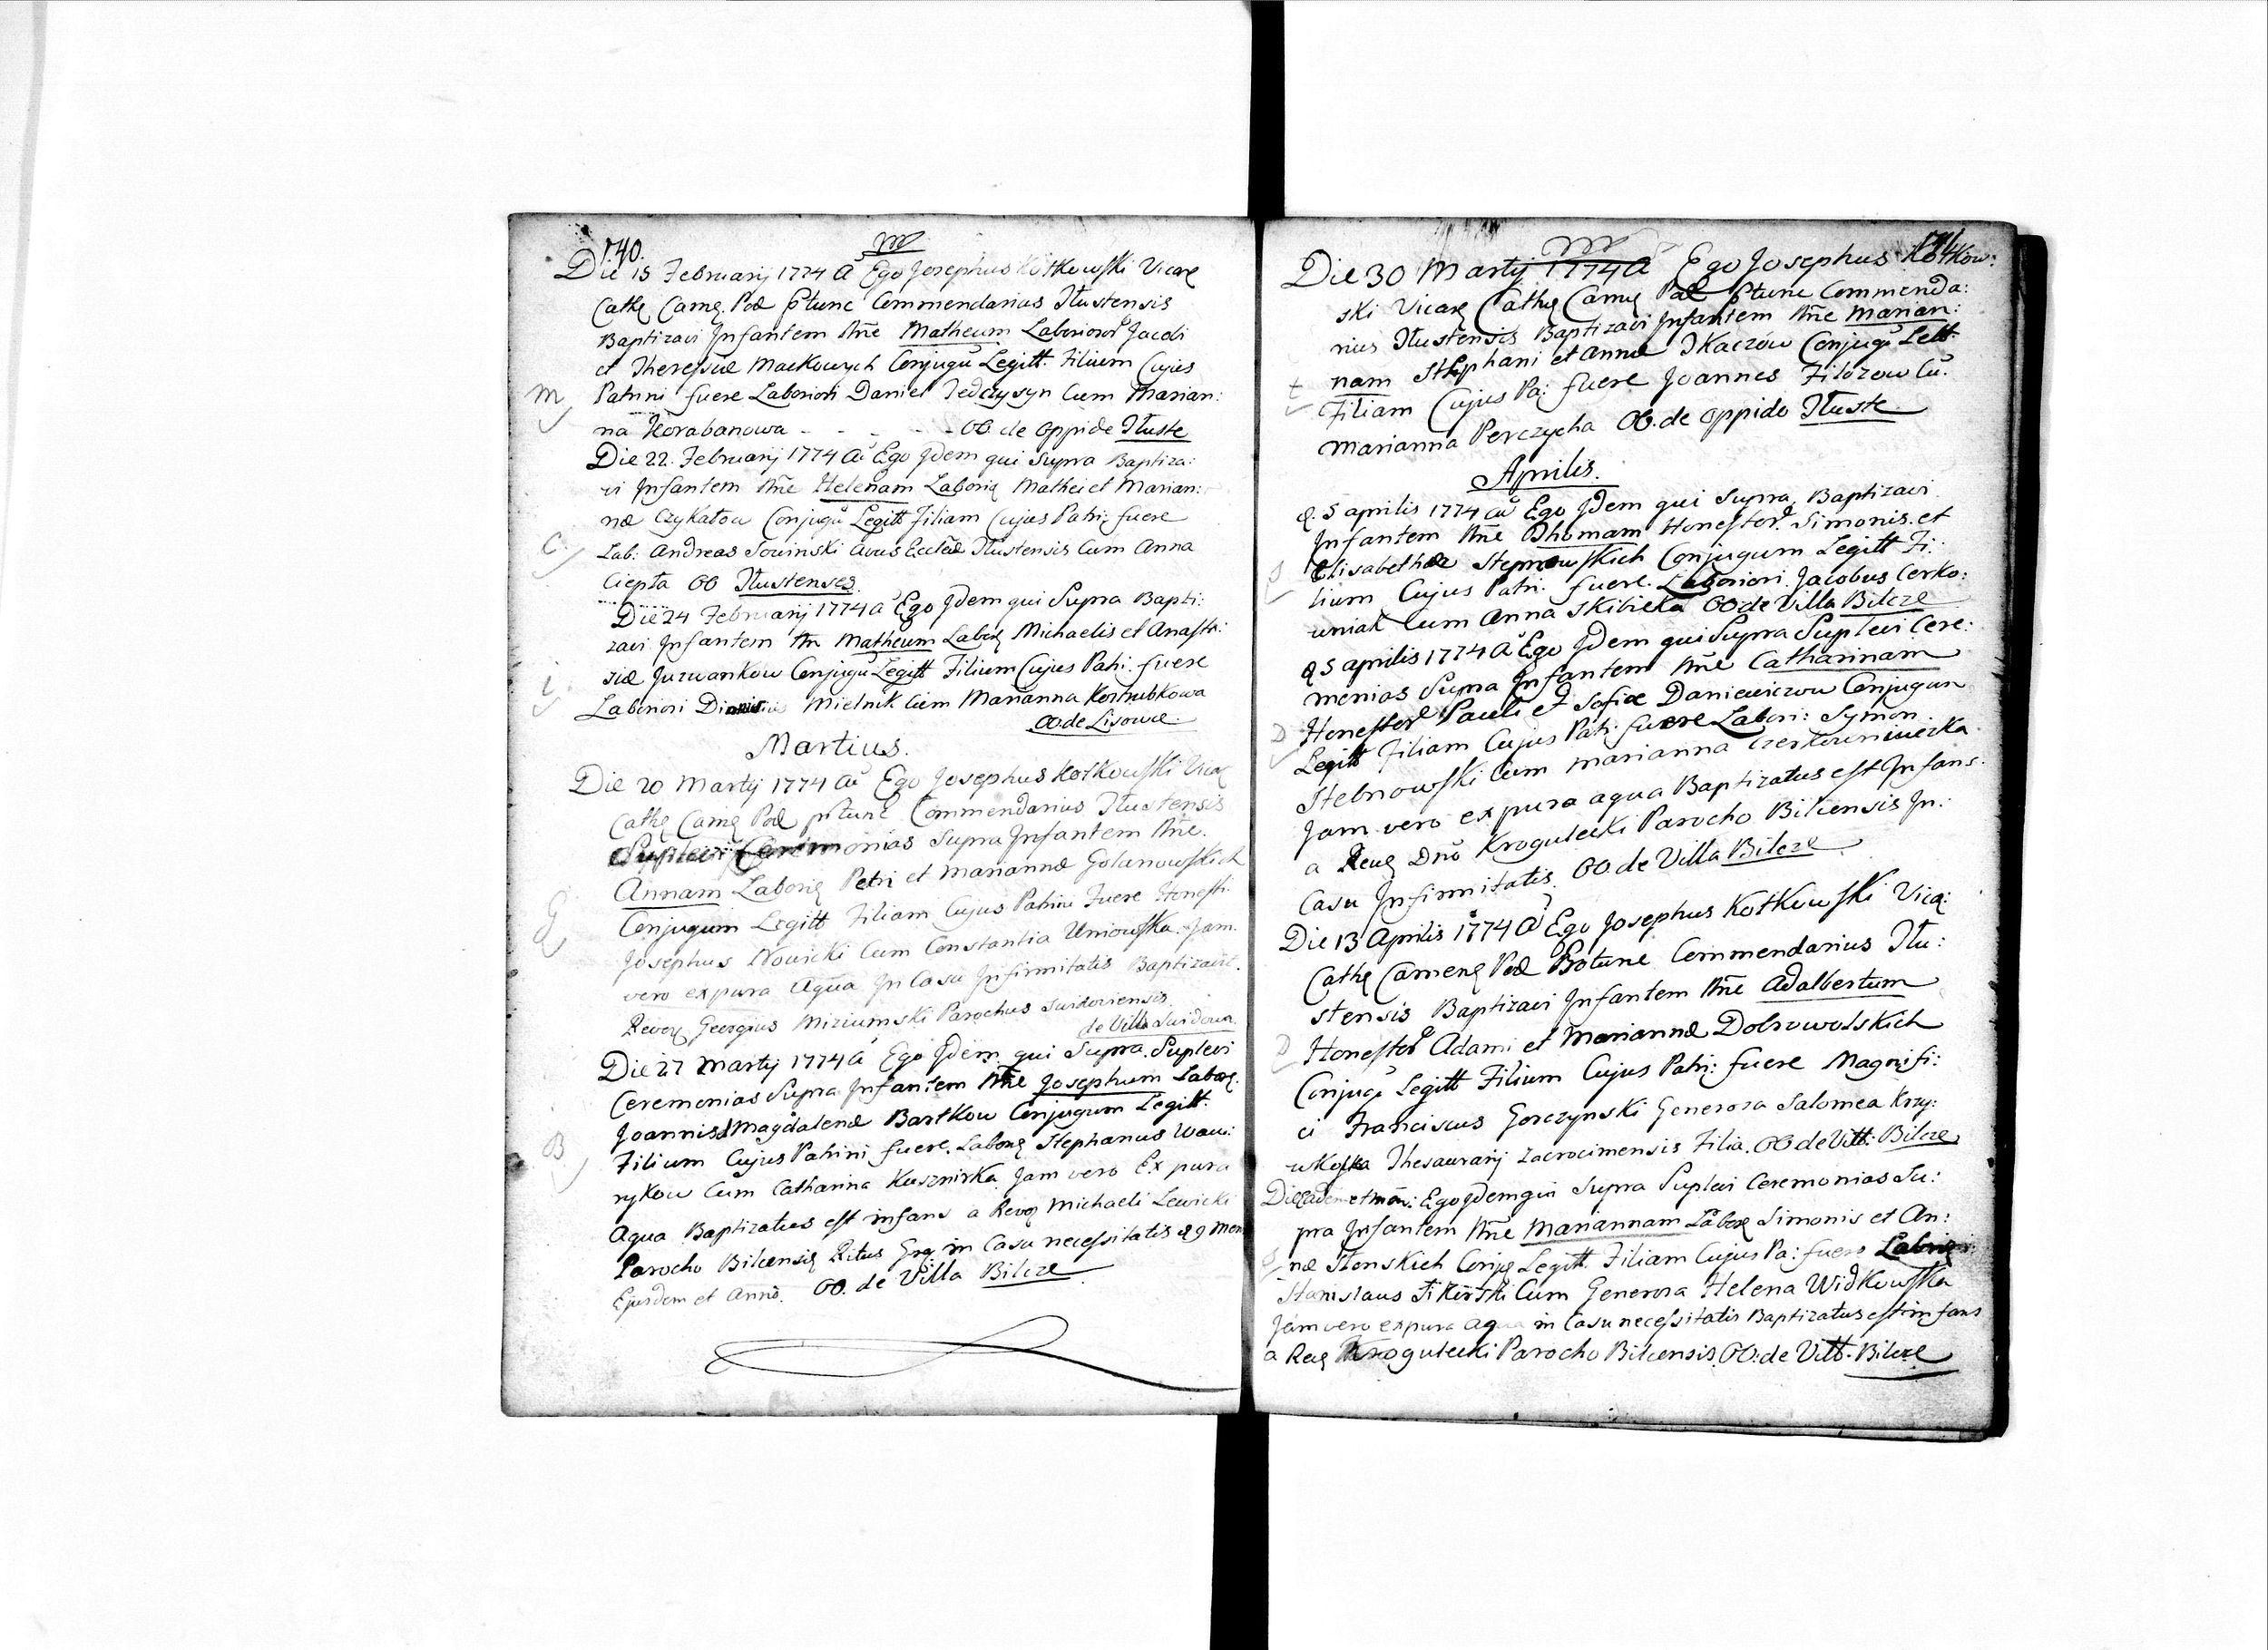 140.
m
Die 15 Februarij 1774 A Ego Josephus Kotkowski Vicar
Cath Came Pod ptunc Commendarius Tłustensis
Baptizavi Infantem Nne Matheum Laborior Jacobi
et Theressiæ Mackowych Conjugu Legitt. Filium Cujus
M Patrini fuere Laboriori Daniel Fedczysyn Cum Marian:
na Korabanowa - - - - OO. de Oppido Tłuste
Die 22. Februarij 1774 A Ego Jdem qui Supra Baptiza:
vi Infantem Nne Helenam Labori Mathei et Marian:
næ Czykałow Conjugu Legitt Filiam Cujus Patri: fuere
C. Lab: Andreas Sowinski Avus Eccleæ Tłustensis Cum Anna
Ciepła OO Tłustenses.
Die 24 Februarij 1774 A Ego Jdem qui Supra Bapti:
zavi Infantem Nn Matheum Labor Michaelis et Anasta:
siæ Jurwankow Conjugu Legitt Filium Cujus Patri: fuere
i. Laboriori Mielnik Cum Marianna Korhubkowa
OO. de Lisowce.
Martius.
Die 20 Martij 1774 A Ego Josephus Kotkowski Vica
Cath Came Pod prtunc Commendarius Tłustensis
Suplevi Ceremonias Supra Infantem Nne.
Annam Labori Petri et Mariannæ Golanowskich
G Conjugum Legitt Filiam Cujus Patrini Fuere Honesti
Josephus Nowicki Cum Constantia Uniowska. Jam
vero ex pura Aqua In Casu Infirmitatis Baptizavit.
Revor Georgius Miziumski Parochus Swidoviensis
de Villa Swidowa.
Die 27 Martij 1774 A Ego Jdem qui Supra Suplevi
Ceremonias Supra Infantem Nne Josephum Labor.
Joannis & Magdalenæ Bartkow Conjugum Legitt.
B Filium Cujus Patrini fuere. Labor Stephanus Waw:
rykow Cum Catharina Kusznirka Jam vero Ex pura
Aqua Baptizatus est infans a Revor Michaeli Lewicki
Parocho Bilcensi Ritus Grę: in Casu necessitatis d 9 Men
Ejusdem et Anno. OO. de Villa Bilcze
141.
m
Die 30 Martij 1774 A Ego Josephus Kotkow:
ski Vicar Cath Came Pod ptunc Commenda:
rius Tłustensis Baptizavi Infantem Nne Marian:
t nam Stephani et Annæ Tkaczow Conjugu Lett.
Filiam Cujus Pa: fuere Joannes Filozow Cu.
Marianna Perczycha OO. de Oppido Tłuste
Aprilis.
d. 5 Aprilis 1774 A Ego Jdem qui Supra, Baptizavi
Infantem Nne Thomam Honestor. Simonis. et
S Elisabethæ Stepnowskich Conjugum Legitt Fi:
lium Cujus Patri: fuere. Laboriori Jacobus Cerko:
wniak Cum Anna Skibicka OO de Villa Bilcze
d 5 Aprilis 1774 A Ego Jdem qui Supra Suplevi Cere:
monias Supra Infantem Nne Catharinam
D Honestor Pauli et Sofiæ Daniewiczow Conjugum
Legitt Filiam Cujus Patri: fuere Labori: Symon
Stebnowski Cum Marianna
Jam vero ex pura aqua Baptizatus est Infans.
a Reve Dno Krogulecki Parocho Bilcensis In:
Casu Infirmitatis. OO. de Villa Bilcze
Die 13 Aprilis 1774 A Ego Josephus Kotkowski Vica:
Cath Camene Pod Protunc Commendarius Tłu:
stensis Baptizavi Infantem Nne Adalbertum
D Honestor Adami et Mariannæ Dobrowolskich
Conjug Legitt Filium Cujus Patri: fuere Magnifi:
ci Franciscus Gorczynski Generosa Salomea Krzy:
wkoska Thesaurarij Zacrocimensis Filia. OO de Vill: Bilcze
Die Eadem et Men: Ego Jdem qui Supra Suplevi Ceremonias Su:
pra Infantem Nne Mariannam Labor Simonis et An:
S næ Stenskich Conjug Legitt. Filiam Cujus Pa: fuere Labori:
Stanislaus Fikirski Cum Generosa Helena Widkowska
Jam vero ex pura aqua in Casu necessitatis Baptizatus est infans
a Reve Krogulecki Parocho Bilcensis. OO: de Vill. Bilcze